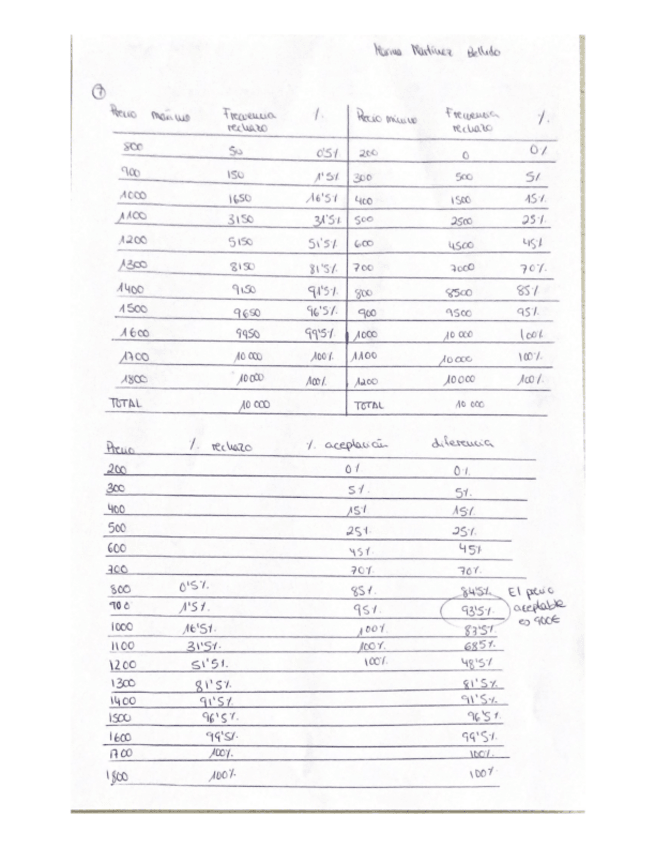 Marina Martínez Bellido
7
Precio máximo Frecuencia rechazo % Precio mínimo Frecuencia rechazo %
800 50 0'5% 200 0 0%
900 150 1'5% 300 500 5%
1000 1650 16'5% 400 1500 15%
1100 3150 31'5% 500 2500 25%
1200 5150 51'5% 600 4500 45%
1300 8150 81'5% 700 7000 70%
1400 9150 91'5% 800 8500 85%
1500 9650 96'5% 900 9500 95%
1600 9950 99'5% 1000 10 000 100%
1700 10 000 100% 1100 10 000 100%
1800 10 000 100% 1200 10 000 100%
TOTAL 10 000 TOTAL 10 000
Precio % rechazo % aceptación diferencia
200 0% 0%
300 5% 5%
400 15% 15%
500 25% 25%
600 45% 45%
700 70% 70%
800 0'5% 85% 84'5%
900 1'5% 95% 93'5% El precio aceptable es 900€
1000 16'5% 100% 83'5%
1100 31'5% 100% 68'5%
1200 51'5% 100% 48'5%
1300 81'5% 81'5%
1400 91'5% 91'5%
1500 96'5% 96'5%
1600 99'5% 99'5%
1700 100% 100%
1800 100% 100%